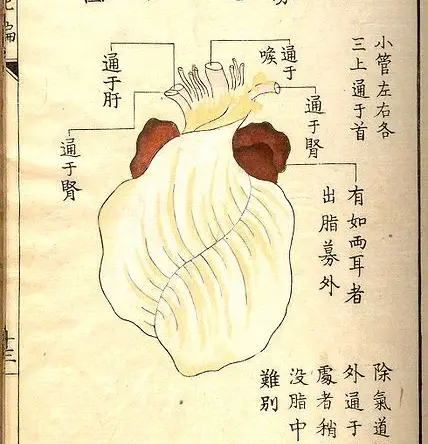 小管左右各
三上通于首
通于
喉
通于肝
通于腎
通于腎
有如兩耳者
出脂募外
除氣道
外通于
處者稍
没脂中
難别
十三